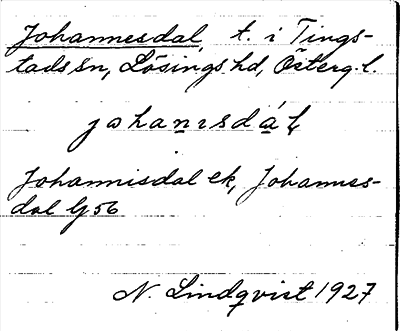 Johannesdal, t. i Tings-
tads sn, Lösings hd, Österg. l.
johanısdáḷ
Johannisdal ek, Johannes-
dal G 56
N. Lindqvist 1927